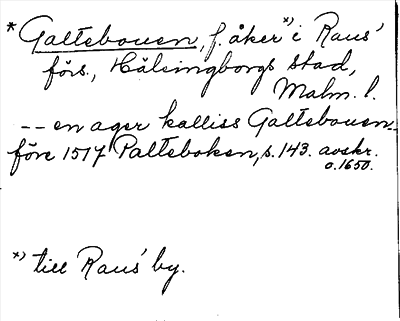 * Galtebouen, f. åker *) i Raus'
förs., Hälsingborgs stad,
Malm. l.
-- en ager kalliss Galtebouen --
före 1517 Palteboken, s. 143. avskr.
o. 1650.
*) till Raus' by.